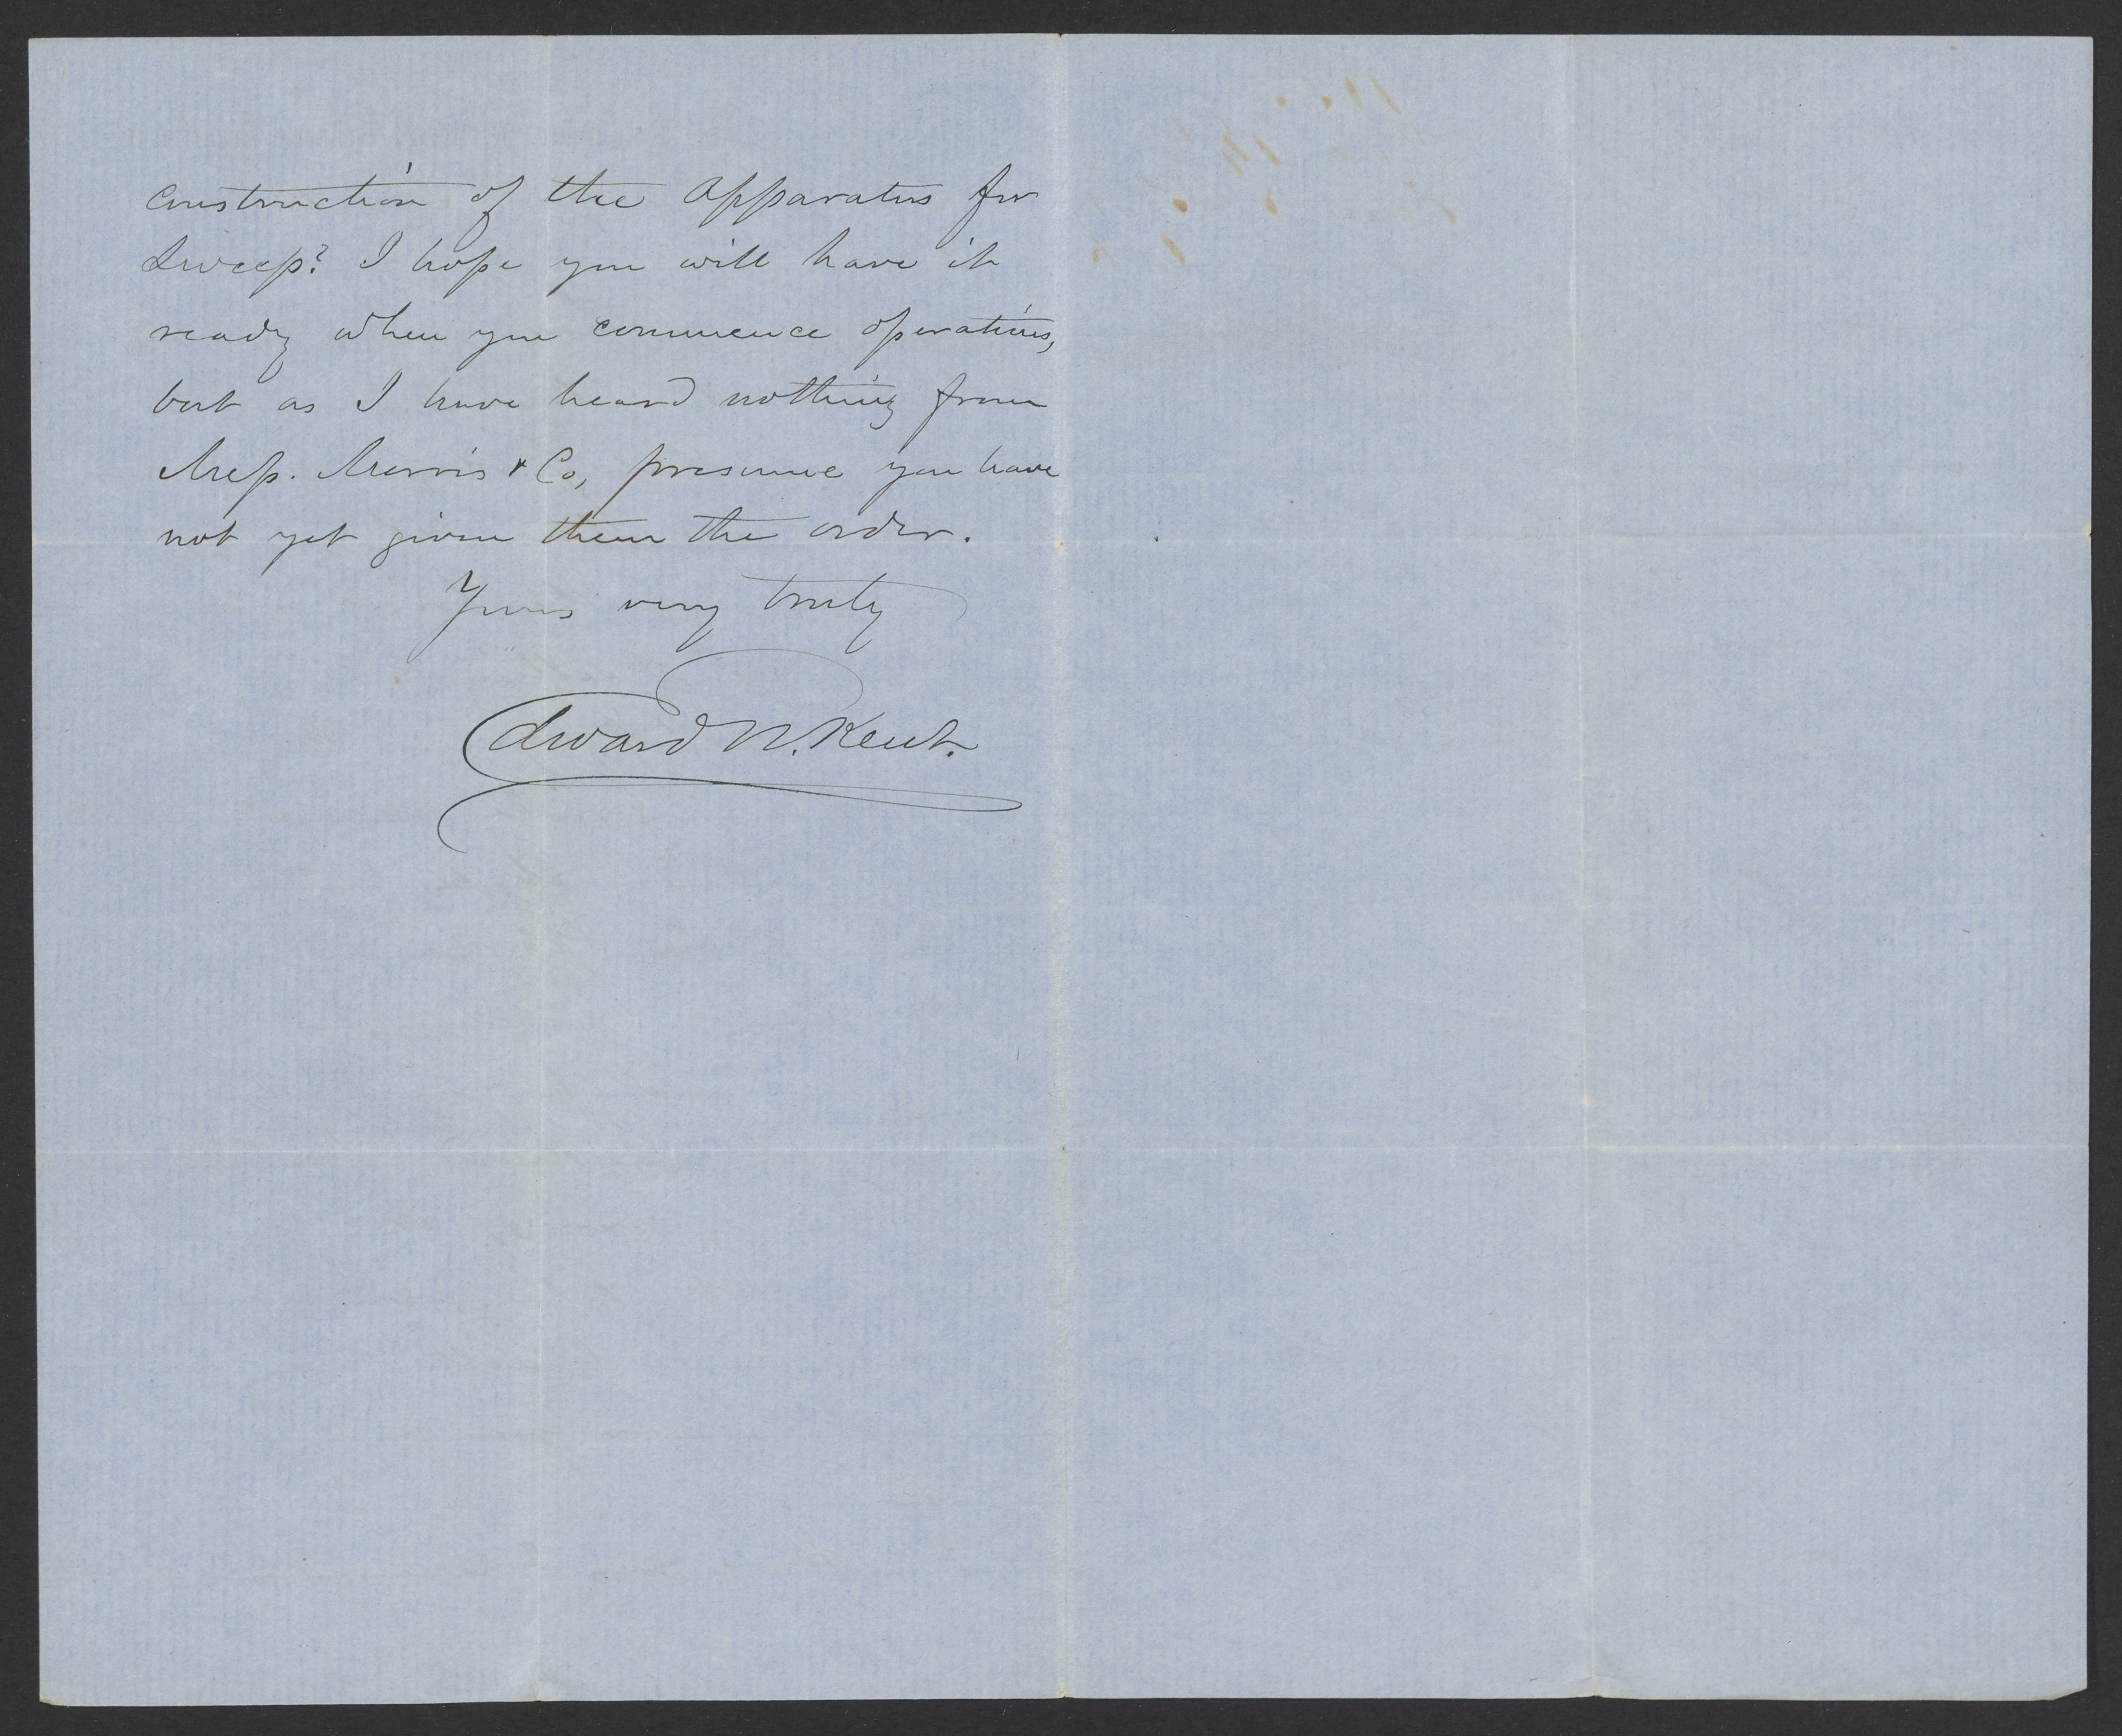 construction of the apparatus for
Sweep? I hope you will have it
ready when you commence operations,
but as I have heard nothing from
Mess. Morris & Co, presume you have
not yet given them the order.
Yours very truly
Edward N. Kent.